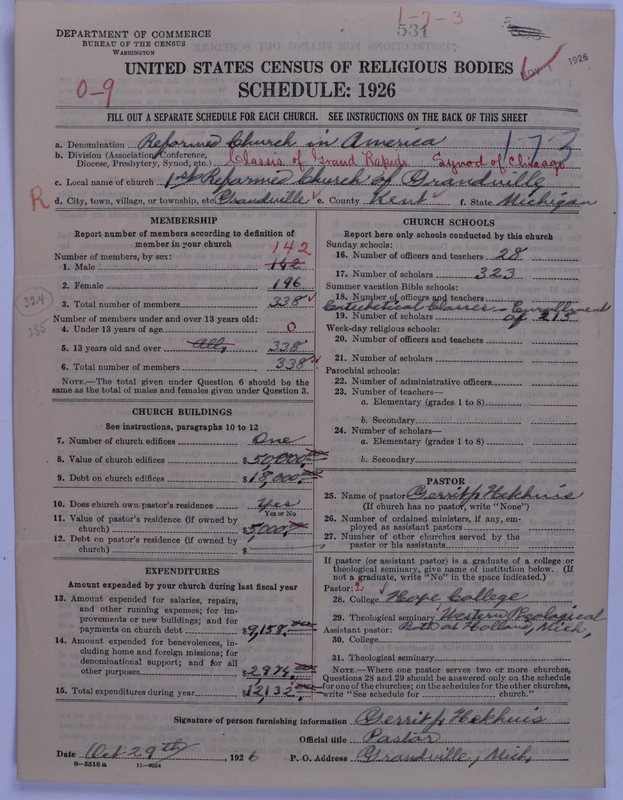 1-7-3
531
DEPARTMENT OF COMMERCE
BUREAU OF THE CENSUS
WASHINGTON
1926
UNITED STATES CENSUS OF RELIGIOUS BODIES
0-9
SCHEDULE: 1926
FILL OUT A SEPARATE SCHEDULE FOR EACH CHURCH. SEE INSTRUCTIONS ON THE BACK OF THIS SHEET
a. Denomination Reformed Church in America 1-7-3
b. Division (Association, Conference, Diocese, Presbytery, Synod, etc.) Classis of Grand Rapids Synod of Chicago
c. Local name of church 1st Reformed Church of Grandville
R
d. City, town, village, or township, etc. Grandville e. County Kent f. State Michigan
MEMBERSHIP
Report number of members according to definition of
member in your church
142
Number of members, by sex:
1. Male 142
2. Female 196
3. Total number of members 338
324
285
Number of members under and over 13 years old:
4. Under 13 years of age 0
5. 13 years old and over All, 338
6. Total number of members 338
NOTE.—The total given under Question 6 should be
same as the total of males and females given under Question 3.
CHURCH BUILDINGS
See instructions, paragraphs 10 to 12
7. Number of church edifices One
8. Value of church edifices $50,000.
9. Debt on church edifices $18,000.
10. Does church own pastor's residence Yes
Yes or No
11. Value of pastor's residence (if owned by
church) $5,000.
12. Debt on pastor's residence (if owned by
church) $
EXPENDITURES
Amount expended by your church during last fiscal year
13. Amount expended for salaries, repairs,
and other running expenses; for im-
provements or new buildings; and for
payments on church debt $9,158.
14. Amount expended for benevolences, in-
cluding home and foreign missions; for
denominational support; and for all
other purposes $2974.
15. Total expenditures during year $12,132
CHURCH SCHOOLS
Report here only schools conducted by this church
Sunday schools:
16. Number of officers and teachers 28
17. Number of scholars 323
Summer vacation Bible schools:
18. Number of officers and teachers
Catechetical Classes - Enrollment
19. Number of scholars of 213
Week-day religious schools:
20. Number of officers and teachers
21. Number of scholars
Parochial schools:
22. Number of administrative officers
23. Number of teachers—
a. Elementary (grades 1 to 8)
b. Secondary
24. Number of scholars—
a. Elementary (grades 1 to 8)
b. Secondary
PASTOR
25. Name of pastor Gerrit J. Hekhuis
(If church has no pastor, write "None")
26. Number of ordained ministers, if any, em-
ployed as assistant pastors
27. Number of other churches served by the
pastor or his assistants
If pastor (or assistant pastor) is a graduate of a college or
theological seminary, give name of institution below. (If
not a graduate, write "No" in the space indicated.)
Pastor: 2
28. College Hope College
29. Theological seminary Western Theological
Assistant pastor: Both at Holland, Mich,
30. College
31. Theological seminary
NOTE.—Where one pastor serves two or more churches,
Questions 28 and 29 should be answered only on the schedule
for one of the churches; on the schedules for the other churches,
write "See schedule for church."
Signature of person furnishing information Gerrit J. Hekhuis
Official title Pastor
Date Oct 29th, 1926 P. O. Address Grandville, Mich,
8-5518a 11-9024